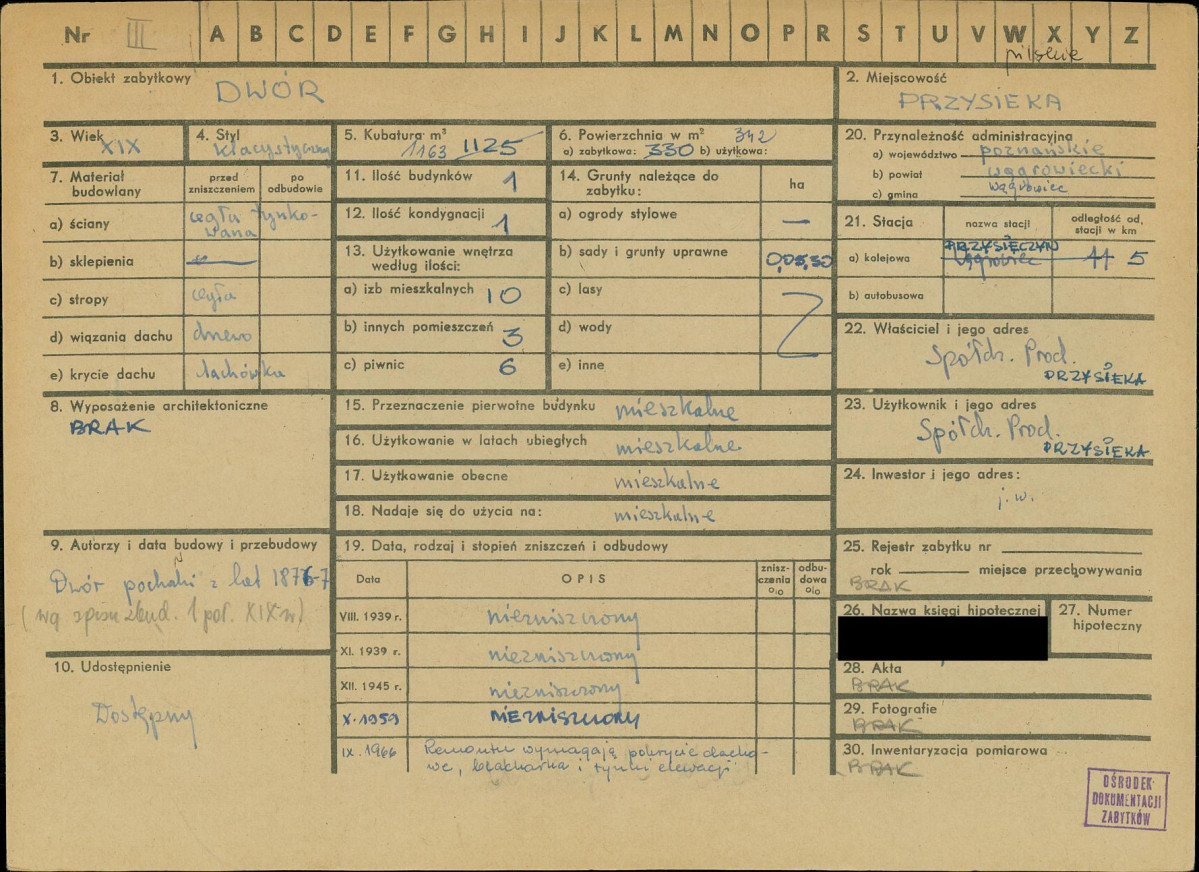 Nr III A B C D E F G H I J K L M N O P R S T U V W X Y Z
pilskie
1. Obiekt zabytkowy
DWÓR
2. Miejscowość
PRZYSIEKA
3. Wiek
XIX
4. Styl
klasystyczny
5. Kubatura m³
1163 1125
6. Powierzchnia w m² 342
a) zabytkowa: 330 b) użytkowa:
7. Materiał budowlany
przed zniszczeniem
po odbudowie
a) ściany
cegła tynko-
wana
b) sklepienia —
c) stropy cegła
d) wiązania dachu drewo
e) krycie dachu dachówka
8. Wyposażenie architektoniczne
BRAK
9. Autorzy i data budowy i przebudowy
Dwór pochodzi z lat 1876-7
(wg spisu zbud. 1 poł. XIX w)
10. Udostępnienie
Dostępny
11. Ilość budynków 1
12. Ilość kondygnacji 1
13. Użytkowanie wnętrza
według ilości:
a) izb mieszkalnych 10
b) innych pomieszczeń 3
c) piwnic 6
14. Grunty należące do
zabytku:
ha
a) ogrody stylowe —
b) sady i grunty uprawne 0,05,30
c) lasy
d) wody
e) inne
15. Przeznaczenie pierwotne budynku mieszkalne
16. Użytkowanie w latach ubiegłych mieszkalne
17. Użytkowanie obecne mieszkalne
18. Nadaje się do użycia na: mieszkalne
19. Data, rodzaj i stopień zniszczeń i odbudowy
Data
OPIS
znisz-
czenia
%
odbu-
dowa
%
VIII. 1939 r. niezniszczony
XI. 1939 r. niezniszczony
XII. 1945 r. niezniszczony
X.1959 NIEZNISZCZONY
IX.1966 Remontu wymagają pokrycie dacho-
we, blacharka i tynki elewacji
20. Przynależność administracyjna
a) województwo poznańskie
b) powiat wągrowiecki
c) gmina wągrowiec
21. Stacja
nazwa stacji
odległość od
stacji w km
PRZYSIECZYN
a) kolejowa Wągrowiec 11 5
b) autobusowa
22. Właściciel i jego adres
Spółdz. Prod.
PRZYSIEKA
23. Użytkownik i jego adres
Spółdz. Prod.
PRZYSIEKA
24. Inwestor i jego adres:
j. w.
25. Rejestr zabytku nr
rok miejsce przechowywania
BRAK
26. Nazwa księgi hipotecznej
27. Numer
hipoteczny
28. Akta
BRAK
29. Fotografie
BRAK
30. Inwentaryzacja pomiarowa
BRAK
OŚRODEK
DOKUMENTACJI
ZABYTKÓW